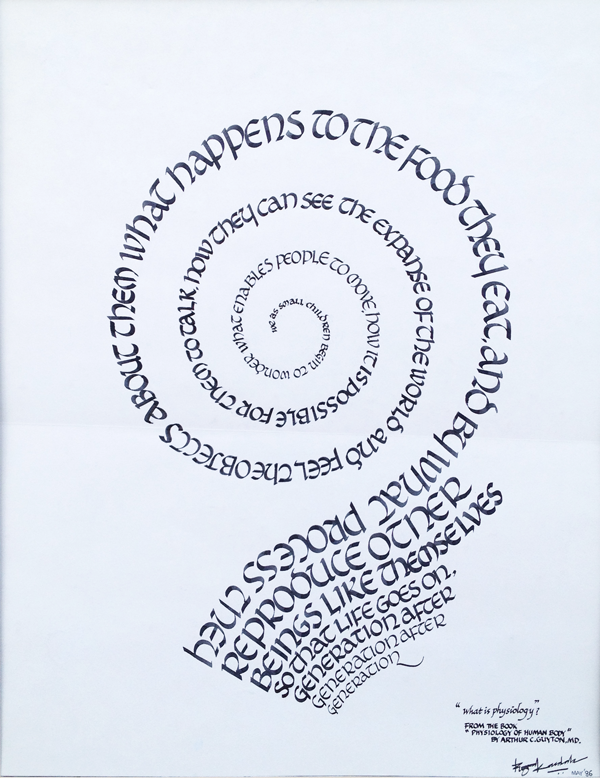 we as small children begin to wonder what enables people to move, how it is possible for them to talk, how they can see the expanse of the world and feel the objects about them what happens to the food they eat, and by what process they
REPRODUCE OTHER
BEINGS LIKE THEMSELVES
SO THAT LIFE GOES ON,
GENERATION AFTER
GENERATION AFTER
GENERATION
"what is physiology"?
FROM THE BOOK
"PHYSIOLOGY OF HUMAN BODY"
BY ARTHUR C. GUYTON, MD.
MAY '86